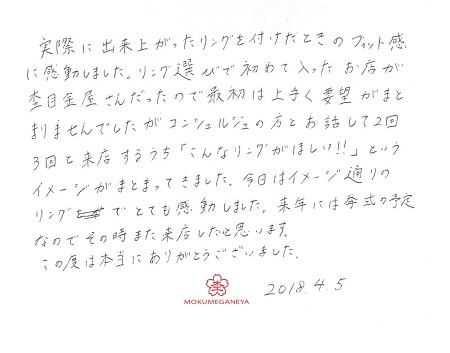 実際に出来上がったリングを付けたときのフィット感
に感動しました。リング選びで初めて入ったお店が
杢目金屋さんだったので最初は上手く要望がまと
まりませんでしたがコンシェルジュの方とお話して2回
3回と来店するうち「こんなリングがほしい!!」という
イメージがまとまってきました。今日はイメージ通りの
リングでとても感動しました。来年には挙式の予定
なのでその時また来店したいと思います。
この度は本当にありがとうございました。
MOKUMEGANEYA
2018.4.5